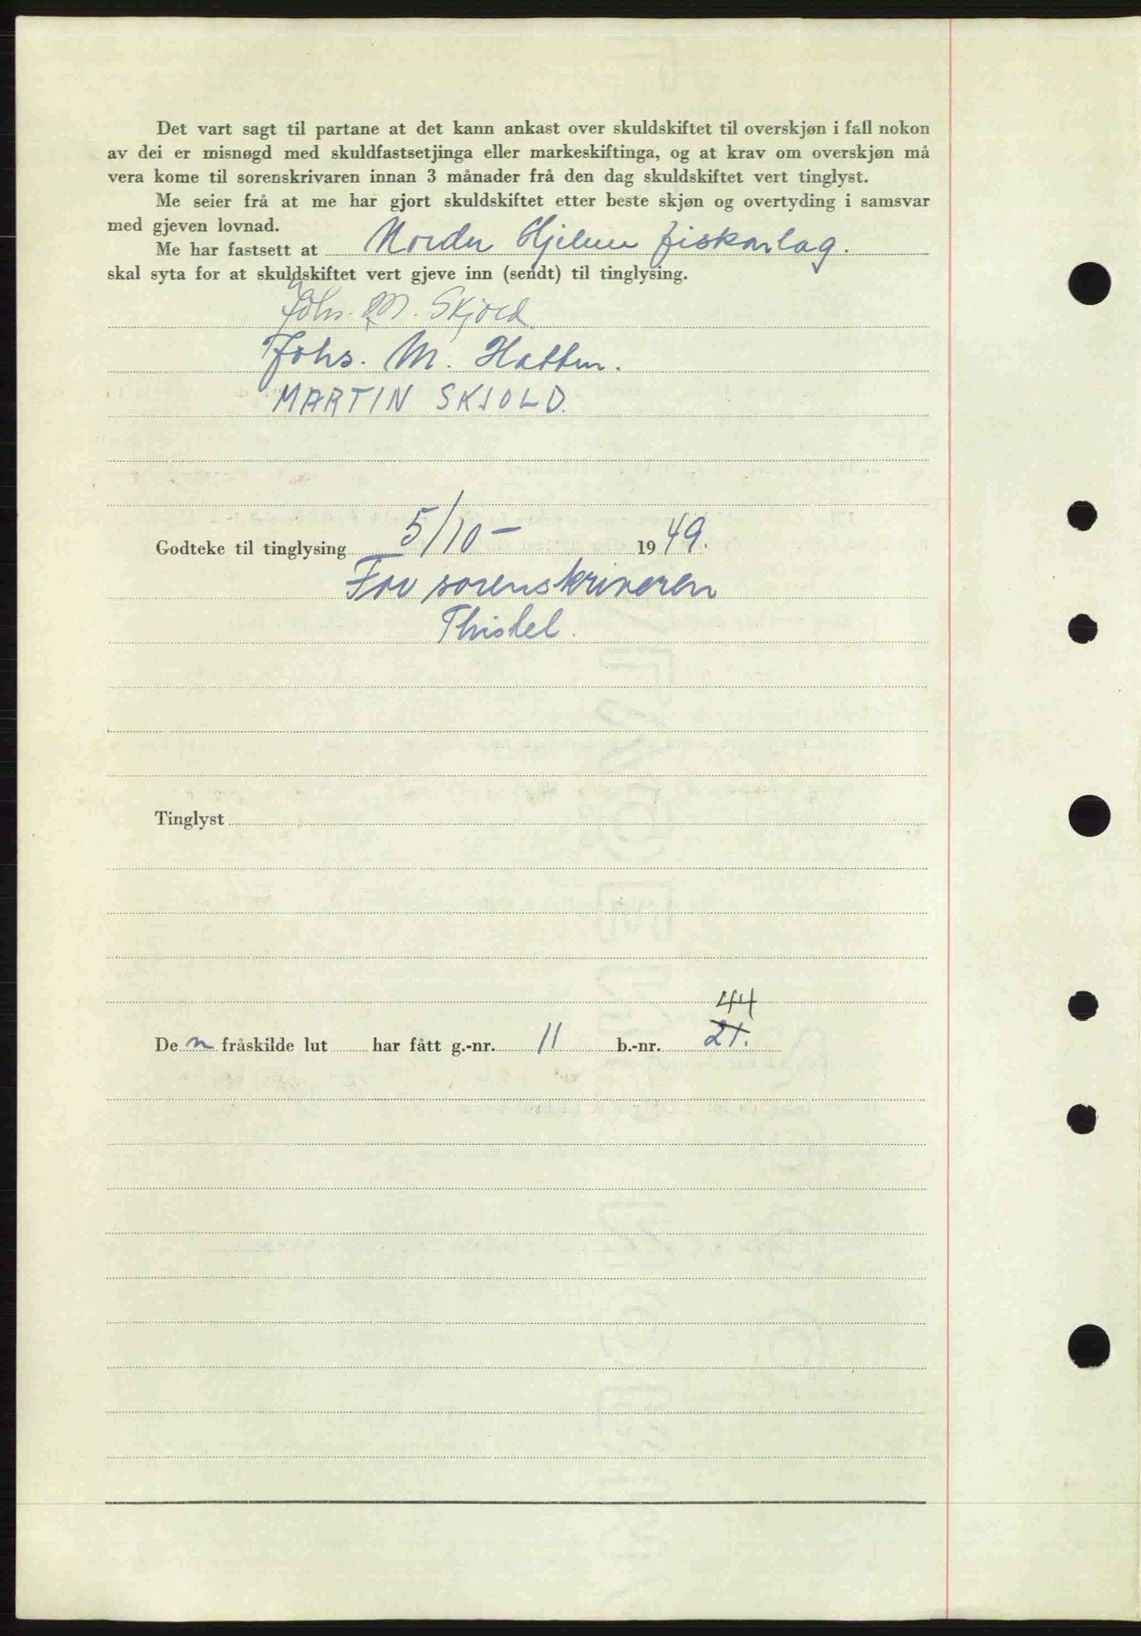 Det vart sagt til partane at det kann ankast over skuldskiftet til overskjøn i fall nokon
av dei er misnøgd med skuldfastsetjinga eller markeskiftinga, og at krav om overskjøn må
vera kome til sorenskrivaren innan 3 månader frå den dag skuldskiftet vert tinglyst.
Me seier frå at me har gjort skuldskiftet etter beste skjøn og overtyding i samsvar
med gjeven lovnad.
Me har fastsett at Nordre Hjelme fiskarlag.
skal syta for at skuldskiftet vert gjeve inn (sendt) til tinglysing.
Johs. M. Skjold
Johs. M. Hatten.
MARTIN SKJOLD.
Godteke til tinglysing 5/10 - 1949.
For sorenskriveren
Thistel.
Tinglyst
44
De n fråskilde lut har fått g.-nr. 11 b.-nr. 21.